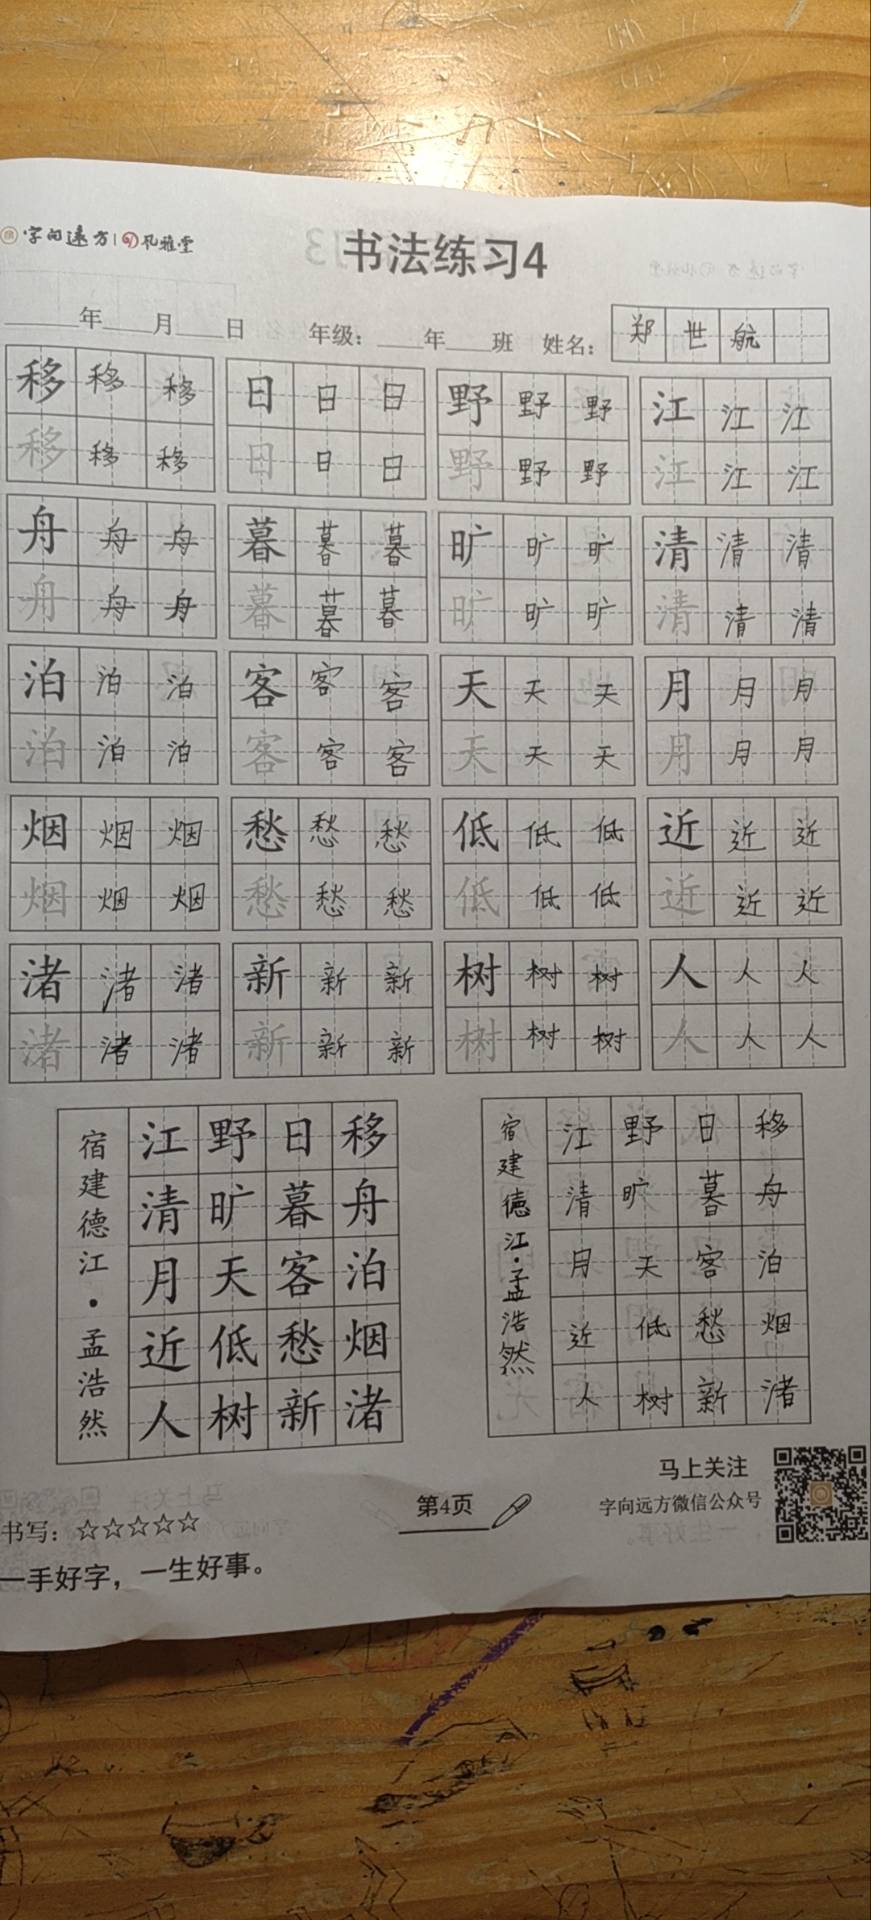 字向远方 | 风雅堂
书法练习4
____年____月____日 年级：____年____班 姓名： 郑世航
移 移 移 日 日 日 野 野 野 江 江 江
移 移 移 日 日 日 野 野 野 江 江 江
舟 舟 舟 暮 暮 暮 旷 旷 旷 清 清 清
舟 舟 舟 暮 暮 暮 旷 旷 旷 清 清 清
泊 泊 泊 客 客 客 天 天 天 月 月 月
泊 泊 泊 客 客 客 天 天 天 月 月 月
烟 烟 烟 愁 愁 愁 低 低 低 近 近 近
烟 烟 烟 愁 愁 愁 低 低 低 近 近 近
渚 渚 渚 新 新 新 树 树 树 人 人 人
渚 渚 渚 新 新 新 树 树 树 人 人 人
移舟泊烟渚
日暮客愁新
野旷天低树
江清月近人
宿建德江·孟浩然
移舟泊烟渚
日暮客愁新
野旷天低树
江清月近人
宿建德江·孟浩然
马上关注
字向远方微信公众号
第4页
书写：☆☆☆☆☆
一手好字，一生好事。